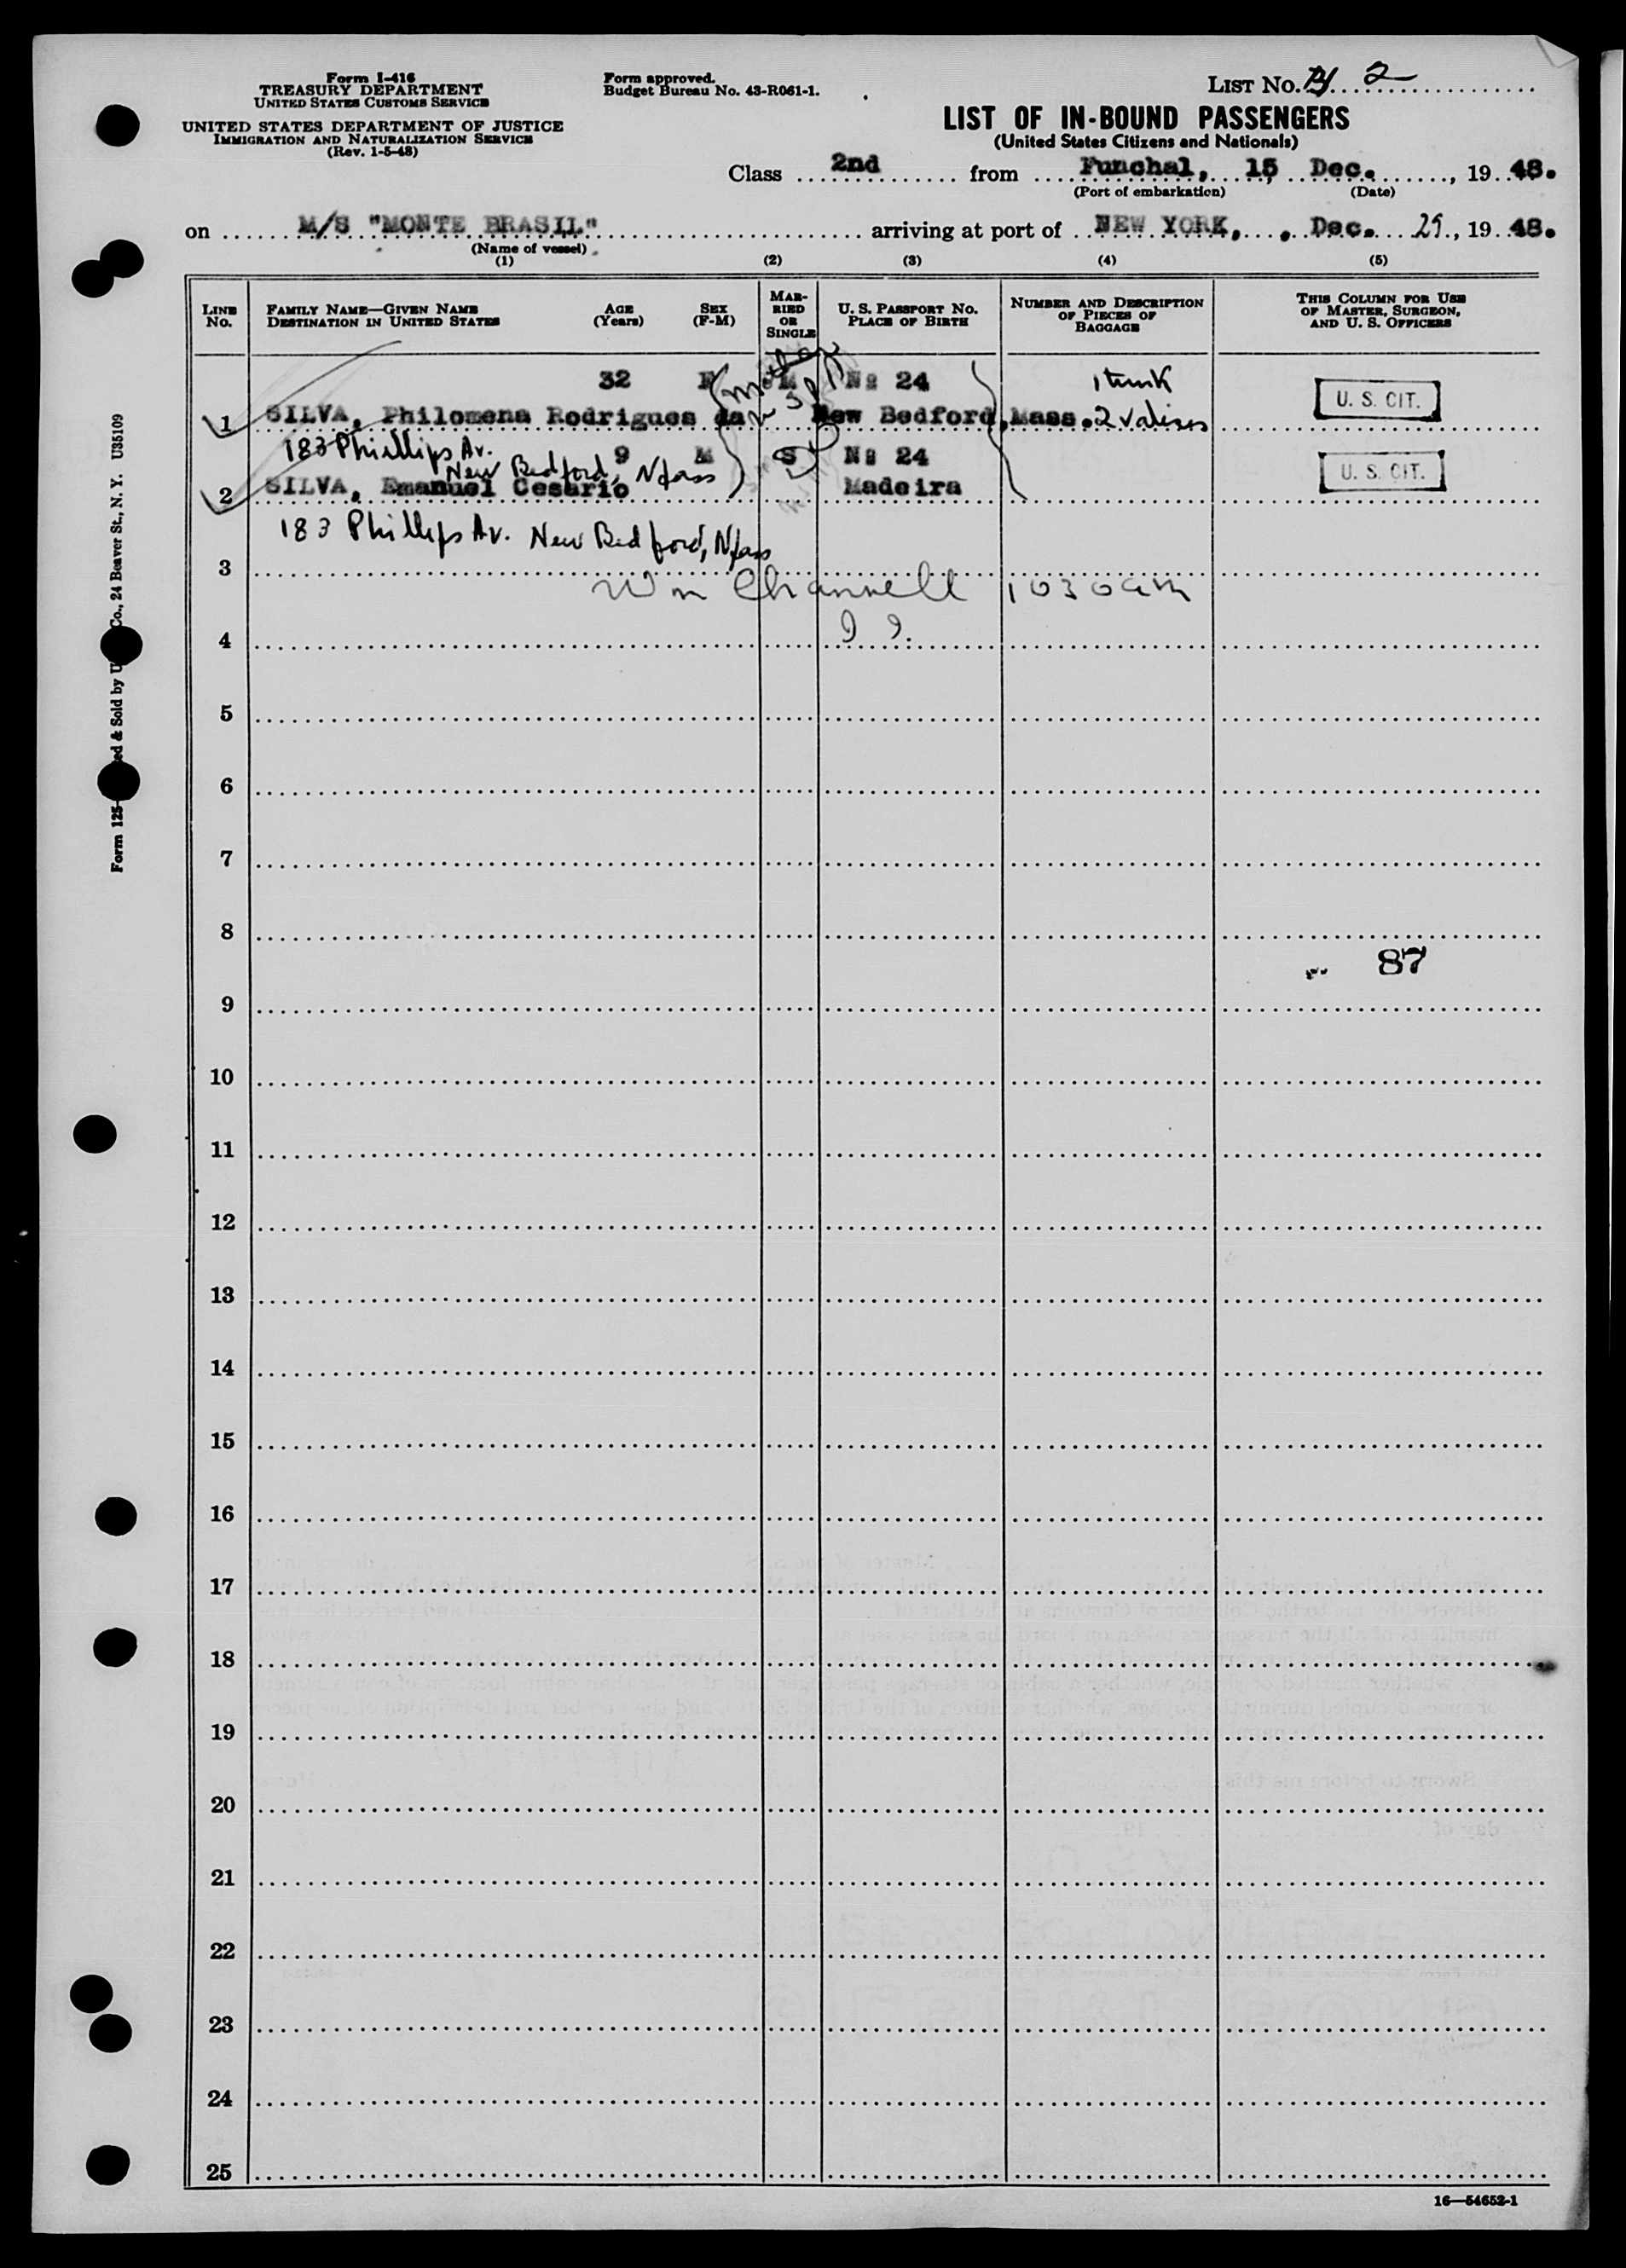 Form I-416
TREASURY DEPARTMENT
UNITED STATES CUSTOMS SERVICE
UNITED STATES DEPARTMENT OF JUSTICE
IMMIGRATION AND NATURALIZATION SERVICE
(Rev. 1-5-48)
Form approved.
Budget Bureau No. 43-R061-1.
LIST No. 2
LIST OF IN-BOUND PASSENGERS
(United States Citizens and Nationals)
Class 2nd from Funchal, 15 Dec., 19 48.
(Port of embarkation) (Date)
on M/S "MONTE BRASIL" arriving at port of NEW YORK, Dec. 29, 19 48.
(Name of vessel)
(1) (2) (3) (4) (5)
LINE No. FAMILY NAME—GIVEN NAME DESTINATION IN UNITED STATES AGE (Years) SEX (F-M) MARRIED OR SINGLE U. S. PASSPORT No. PLACE OF BIRTH NUMBER AND DESCRIPTION OF PIECES OF BAGGAGE THIS COLUMN FOR USE OF MASTER, SURGEON, AND U. S. OFFICERS
32 F M Nº 24 1 trunk
1 SILVA, Philomena Rodrigues da New Bedford, Mass. 2 valises U. S. CIT.
mother
183 Phillips Av.
New Bedford, Mass
9 M S Nº 24
2 SILVA, Emanuel Cesario Madeira U. S. CIT.
183 Phillips Av. New Bedford, Mass
3
Wm Channell 1030am
I I.
4
5
6
7
8
87
9
10
11
12
13
14
15
16
17
18
19
20
21
22
23
24
25
16—54652-1
Form 125
ed & Sold by U
Co., 24 Beaver St., N. Y. U35109